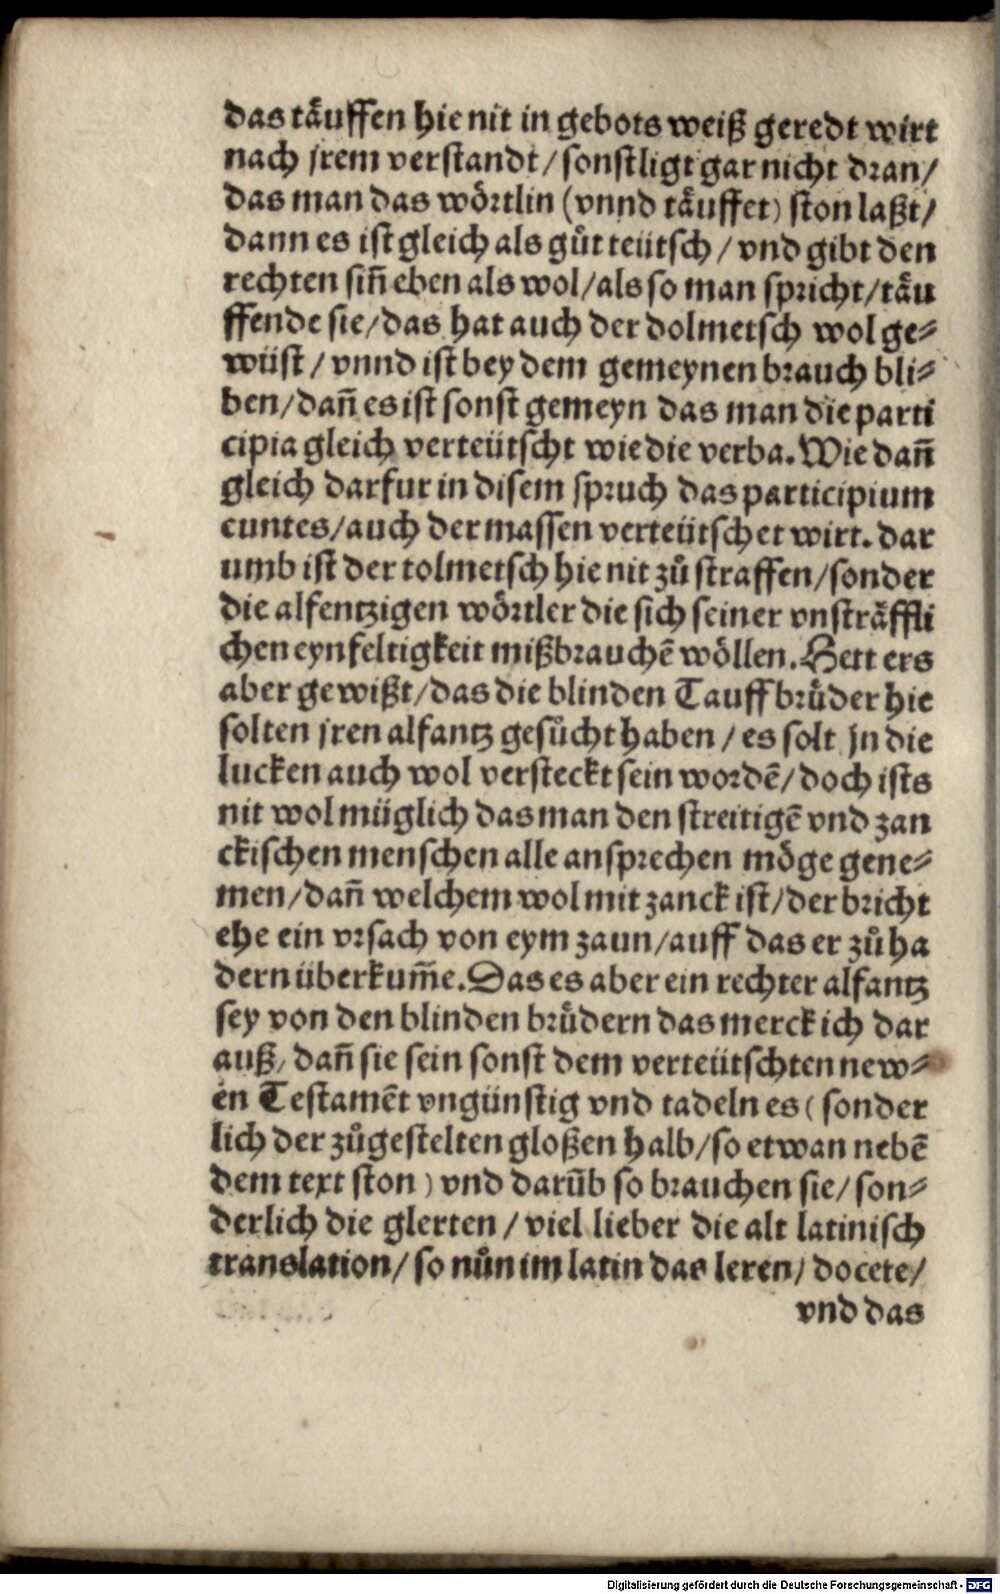 das täuffen hie nit in gebots weiß geredt wirt
nach jrem verstandt / sonst ligt gar nicht dran /
das man das wörtlin (vnnd täuffet) ston laßt /
dann es ist gleich als gůt teütsch / vnd gibt den
rechten siñ eben als wol / als so man spricht / täu
ffende sie / das hat auch der dolmetsch wol ge⸗
wüst / vnnd ist bey dem gemeynen brauch bli⸗
ben / dañ es ist sonst gemeyn das man die parti
cipia gleich verteütscht wie die verba. Wie dañ
gleich darfur in disem spruch das participium
euntes / auch der massen verteütschet wirt. dar
umb ist der tolmetsch hie nit zů straffen / sonder
die alfentzigen wörtler die sich seiner vnsträffli
chen eynfeltigkeit mißbrauchē wöllen. Hett ers
aber gewißt / das die blinden Tauffbrüder hie
solten jren alfantz gesůcht haben / es solt jn die
lucken auch wol versteckt sein wordē / doch ists
nit wol müglich das man den streitigē vnd zan
ckischen menschen alle ansprechen möge gene⸗
men / dañ welchem wol mit zanck ist / der bricht
ehe ein vrsach von eym zaun / auff das er zů ha
dern überkum̃e. Das es aber ein rechter alfantz
sey von den blinden brüdern das merck ich dar
auß / dañ sie sein sonst dem verteütschten new⸗
en Testamēt vngünstig vnd tadeln es (sonder
lich der zůgestelten gloßen halb / so etwan nebē
dem text ston) vnd darūb so brauchen sie / son⸗
derlich die glerten / viel lieber die alt latinisch
translation / so nůn im latin das leren / docete /
vnd das
Digitalisierung gefördert durch die Deutsche Forschungsgemeinschaft - DFG